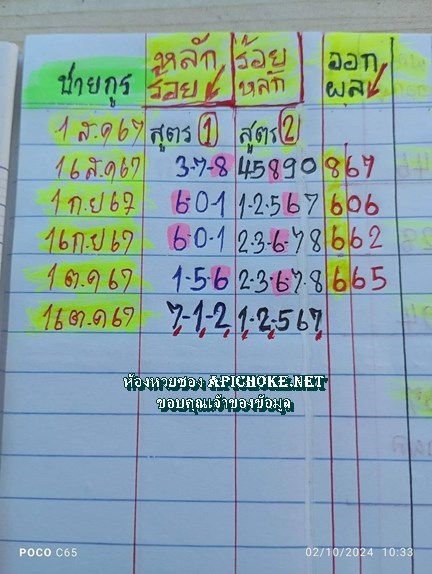 ชายกูร หลักร้อย ร้อยหลัก ออกผล
1 ส.ค 67 สูตร 1 สูตร 2
16 ส.ค 67 3-7-8 45890 867
1 ก.ย 67 6-0-1 1-2-567 606
16 ก.ย 67 6-0-1 2-3-6-78 662
1 ต.ค 67 1-5-6 2-3-67-8 665
16 ต.ค 67 7-1-2 1-2-567
ห้องหวยซอง APICHOKE.NET
ขอบคุณเจ้าของข้อมูล
POCO C65 02/10/2024 10:33